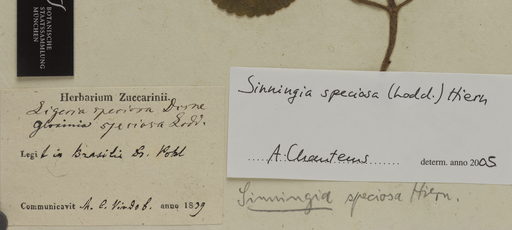 BOTANISCHE
STAATSSAMMLUNG
MÜNCHEN
Herbarium Zuccarinii.
Ligeria speciosa Decne
gloxinia speciosa Lodd.
Legit in Brasilia Dr. Pohl
Communicavit M. C. Vindob. anno 1839
Sinningia speciosa (Lodd.) Hiern
A. Chautems determ. anno 2005
Sinningia speciosa Hiern.